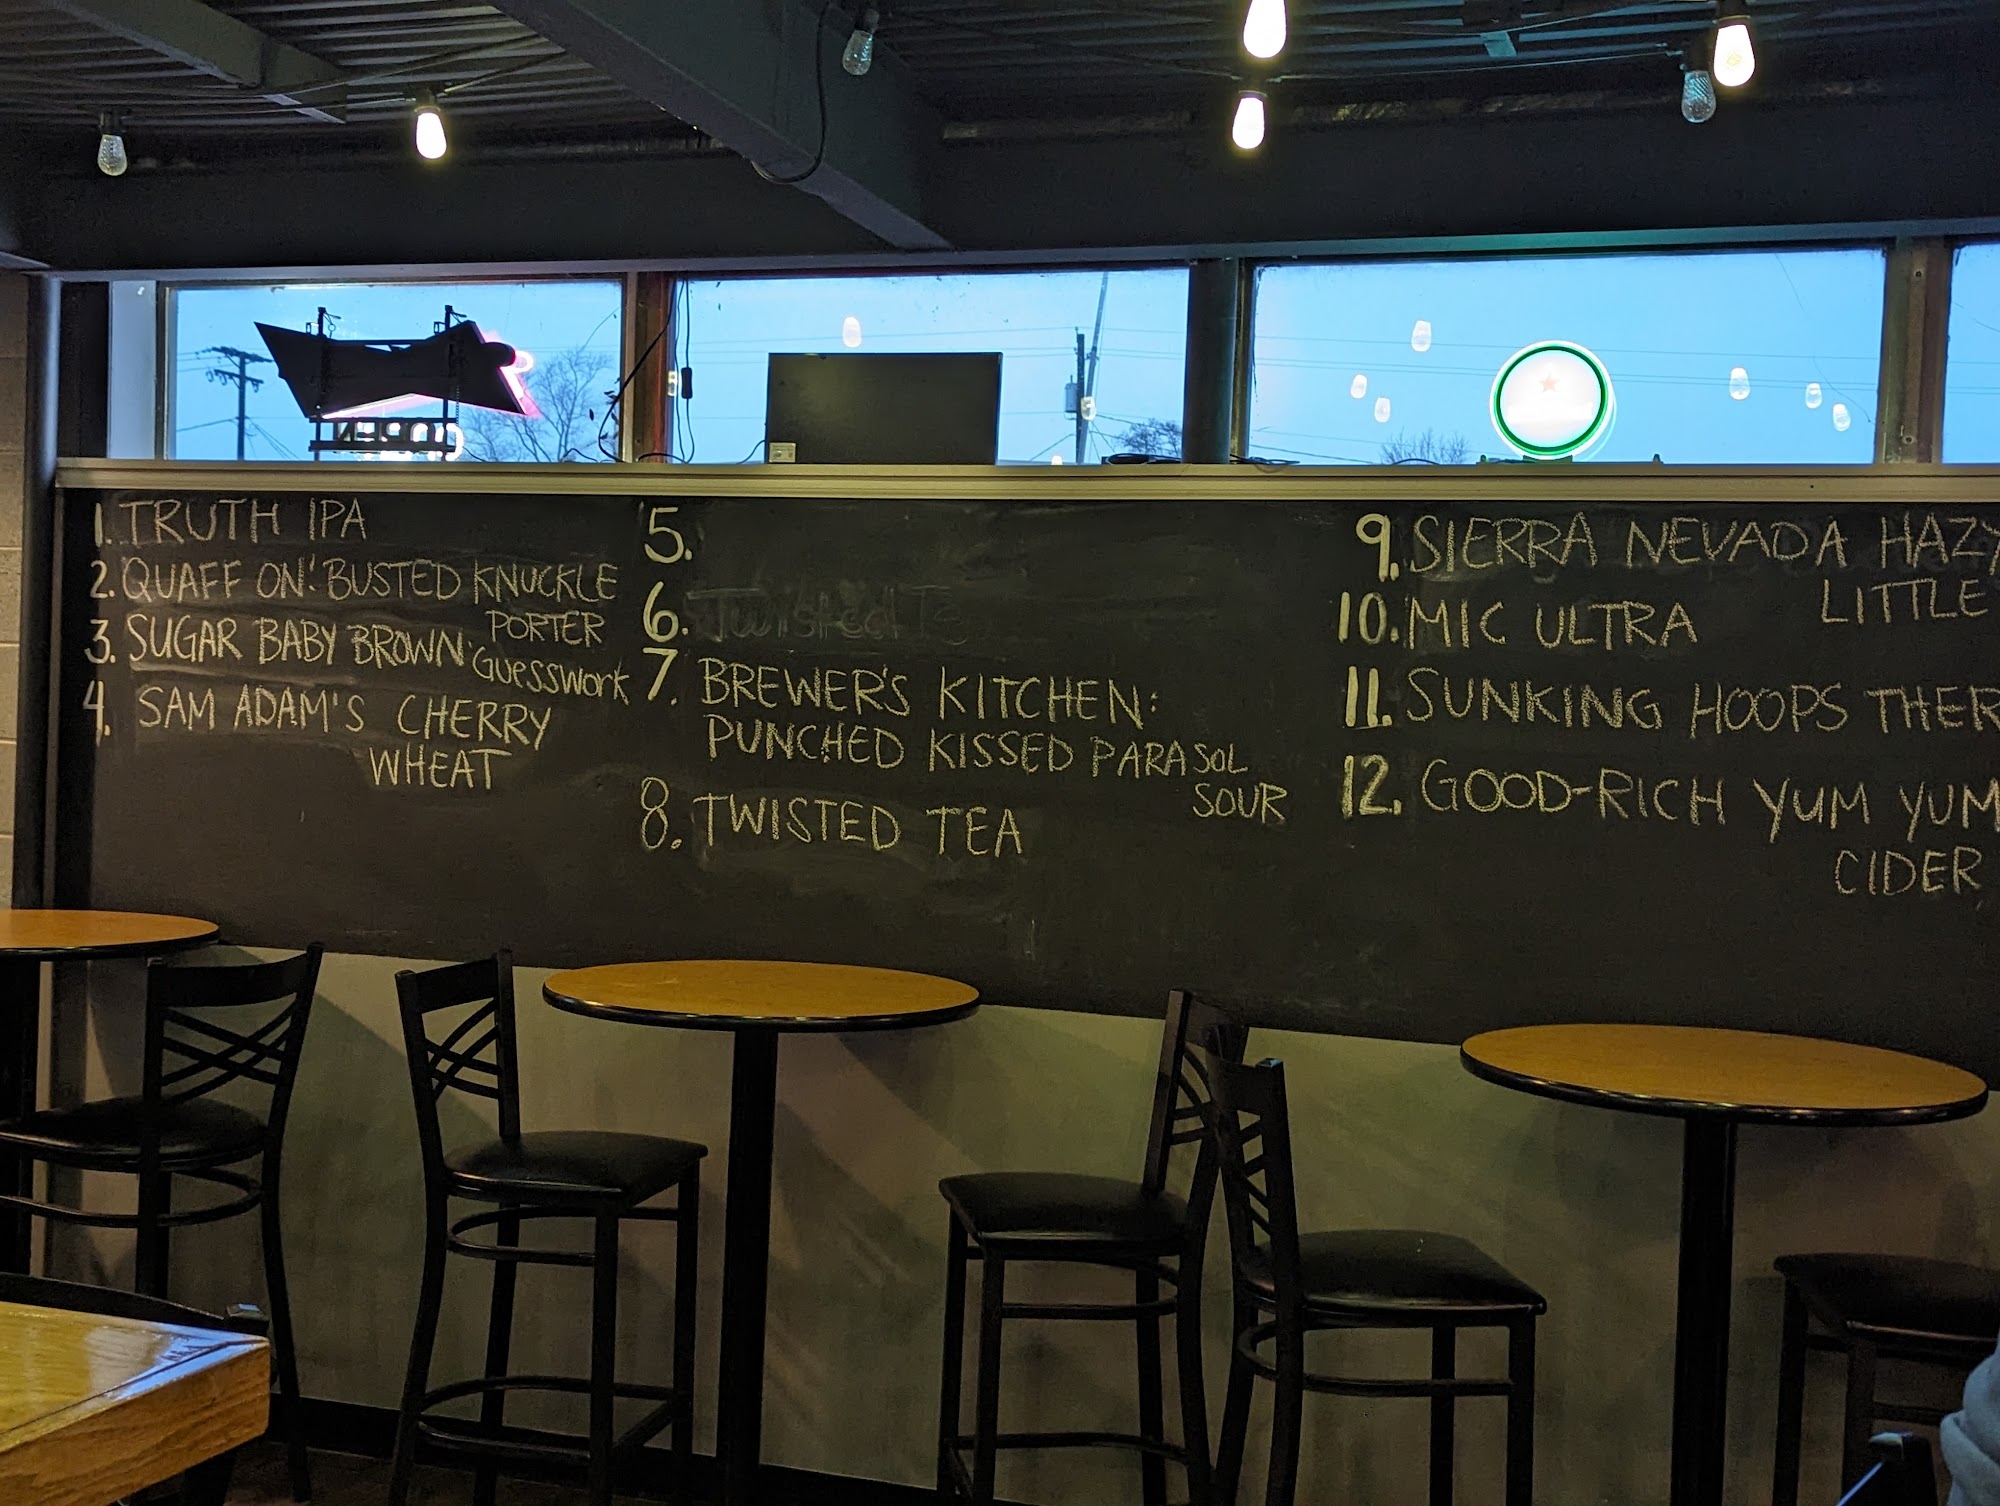 1. TRUTH IPA
2. QUAFF ON! BUSTED KNUCKLE
PORTER
3. SUGAR BABY BROWN· GUESSWORK
4. SAM ADAM'S CHERRY
WHEAT
5.
6. Twisted Te
7. BREWER'S KITCHEN:
PUNCHED KISSED PARASOL
SOUR
8. TWISTED TEA
9. SIERRA NEVADA HAZY
LITTLE
10. MIC ULTRA
11. SUNKING HOOPS THER
12. GOOD-RICH YUM YUM
CIDER
OPEN